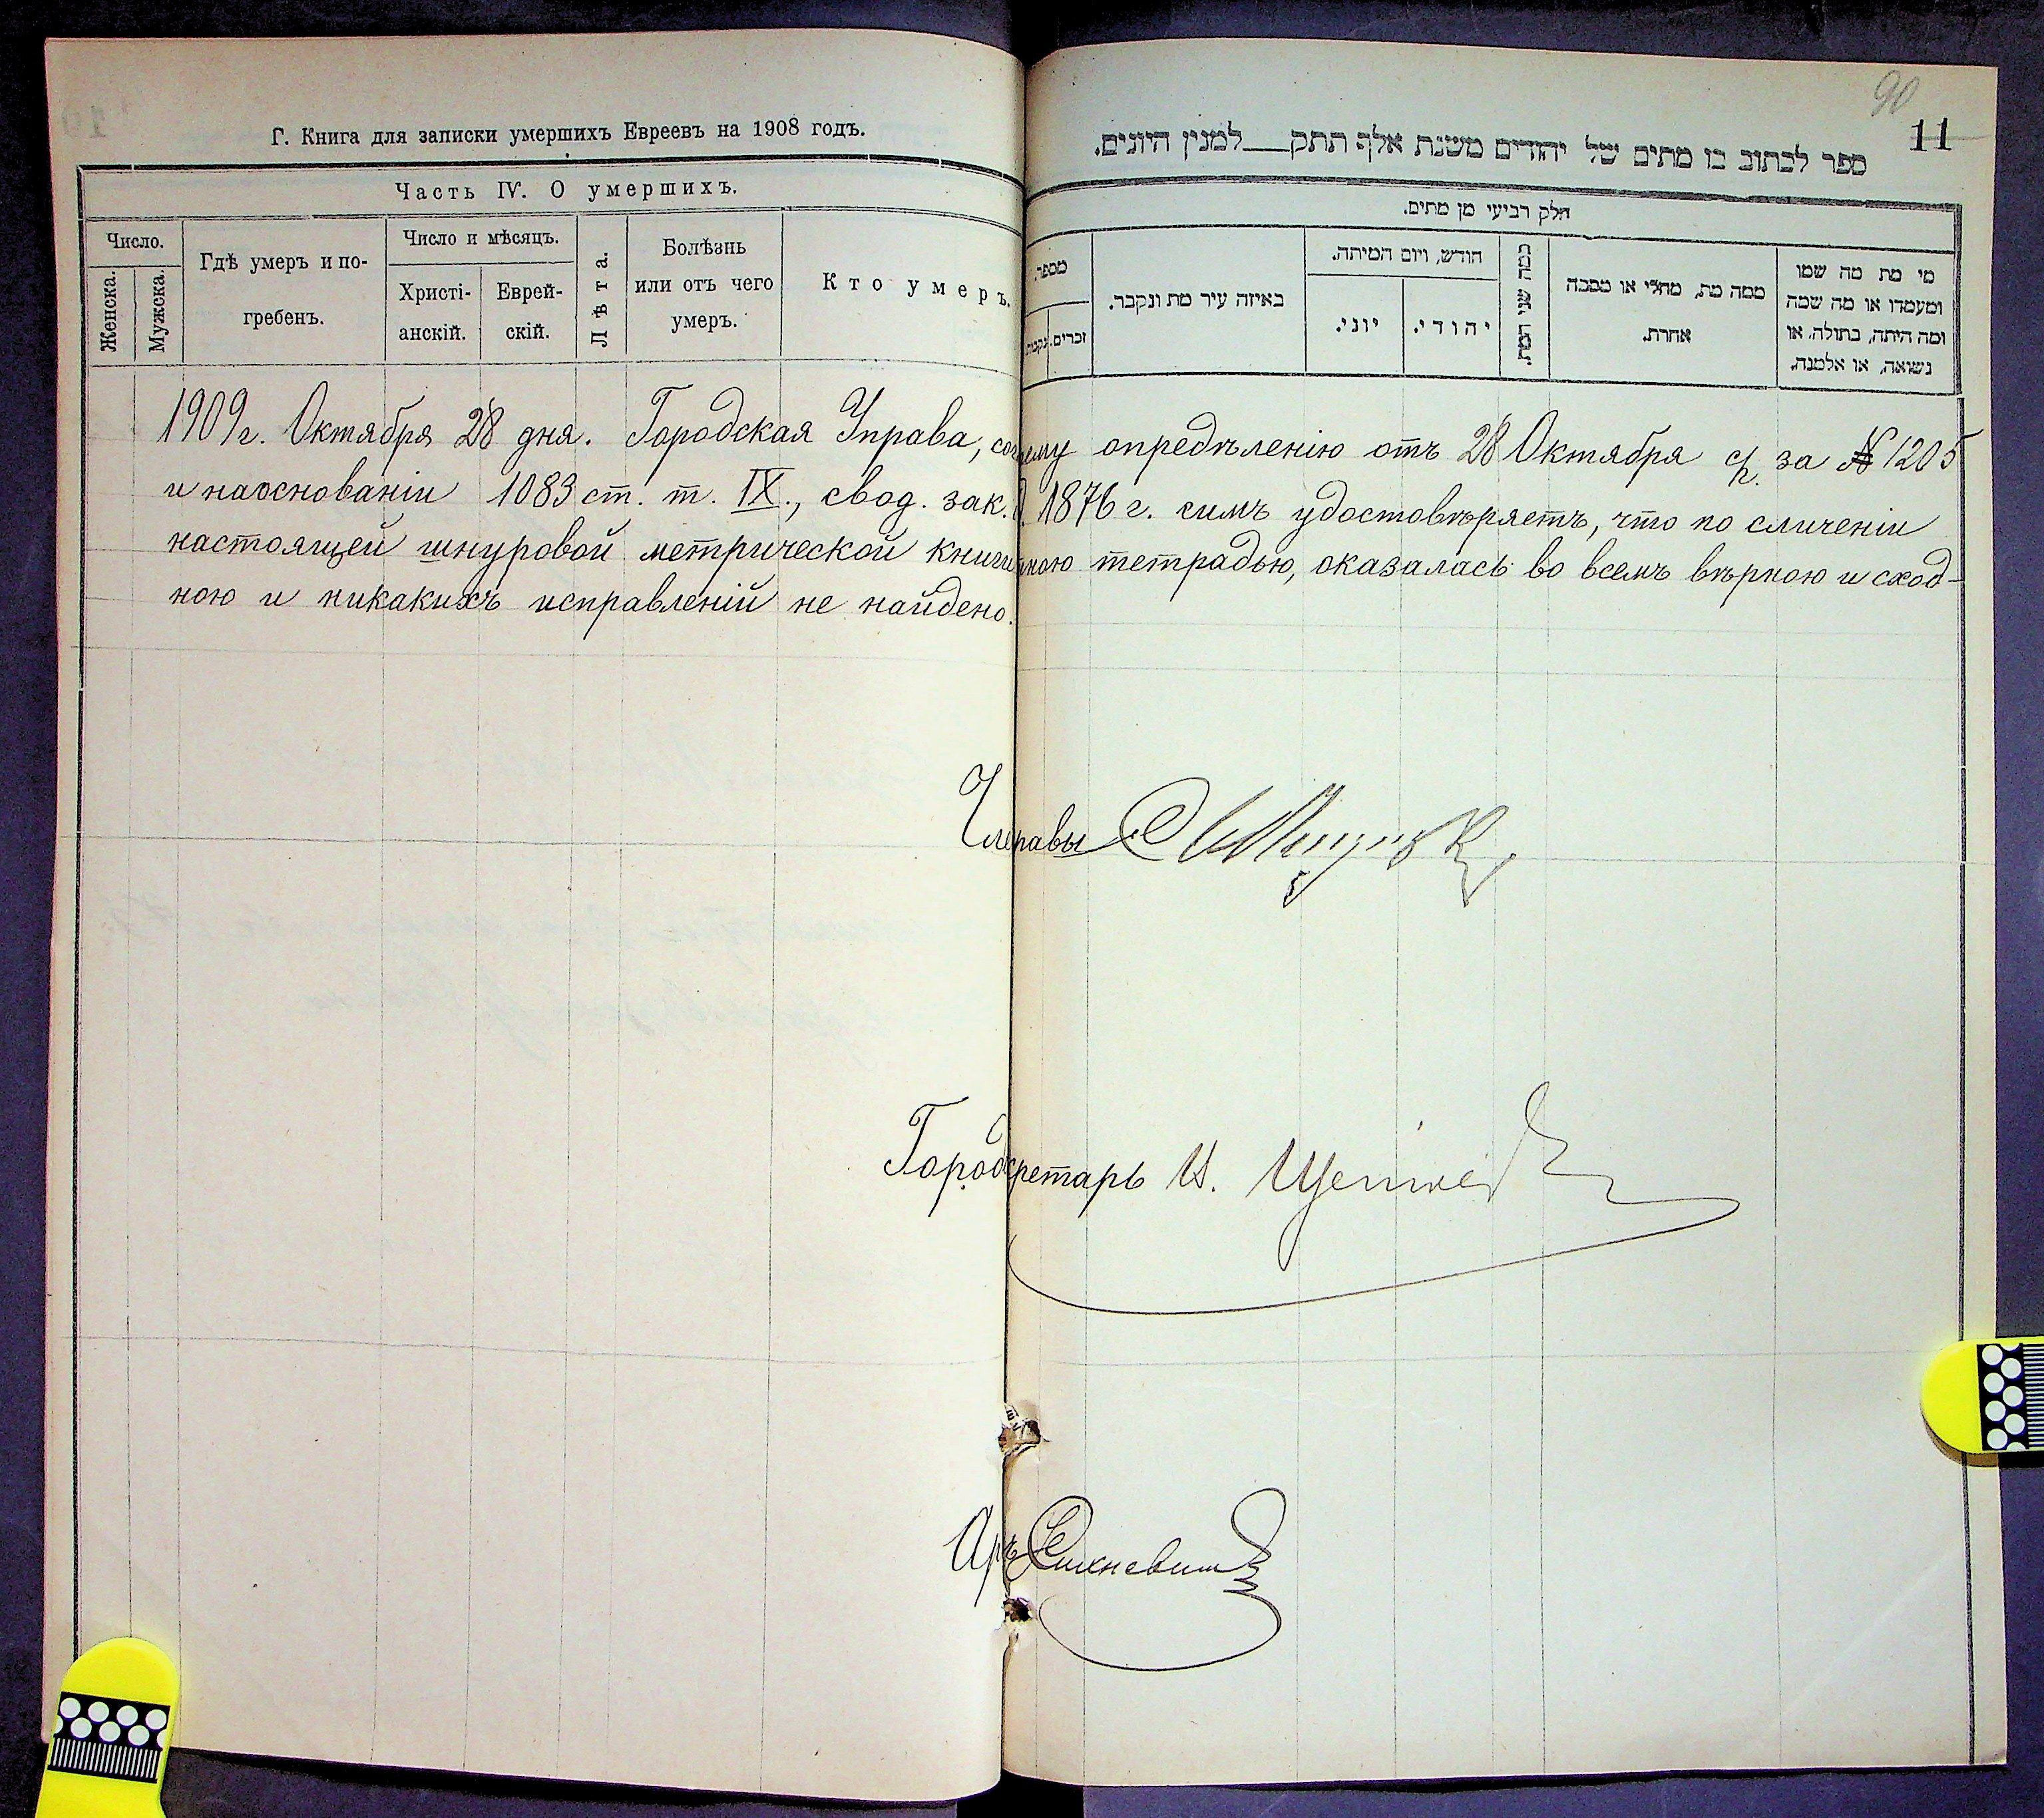 Г. Книга для записки умершихъ Евреевъ на 1908 годъ.
Часть IV. О умершихъ.
Число.
Женска.
Мужска.
Гдѣ умеръ и по-
гребенъ.
Число и мѣсяцъ.
Христі-
анскій.
Еврей-
скій.
Лѣта.
Болѣзнь
или отъ чего
умеръ.
Кто умеръ.
90
11
ספר לכתוב בו מתים של יהודים משנת אלף תתק למנין היונים.
חלק רביעי מן מתים.
מספר.
זכרים.
נקבות.
באיזה עיר מת ונקבר.
חודש, ויום המיתה.
יוני.
יהודי.
כמה שני המת.
ממה מת, מחלי או מסבה
אחרת.
מי מת מה שמו
ומעמדו או מה שמה
ומה היתה, בתולה, או
נשואה, או אלמנה.
1909 г. Октября 28 дня. Городская Управа, сог ему опредѣленію отъ 28 Октября с/г. за № 1205
и на основаніи 1083 ст. т. IX., свод. зак. 1876 г. симъ удостовѣряетъ, что по сличеніи
настоящей шнуровой метрической книги ною тетрадью, оказалась во всемъ вѣрною и сход-
ною и никакихъ исправленій не найдено.
Чле равы
Город кретарь И.
Ар